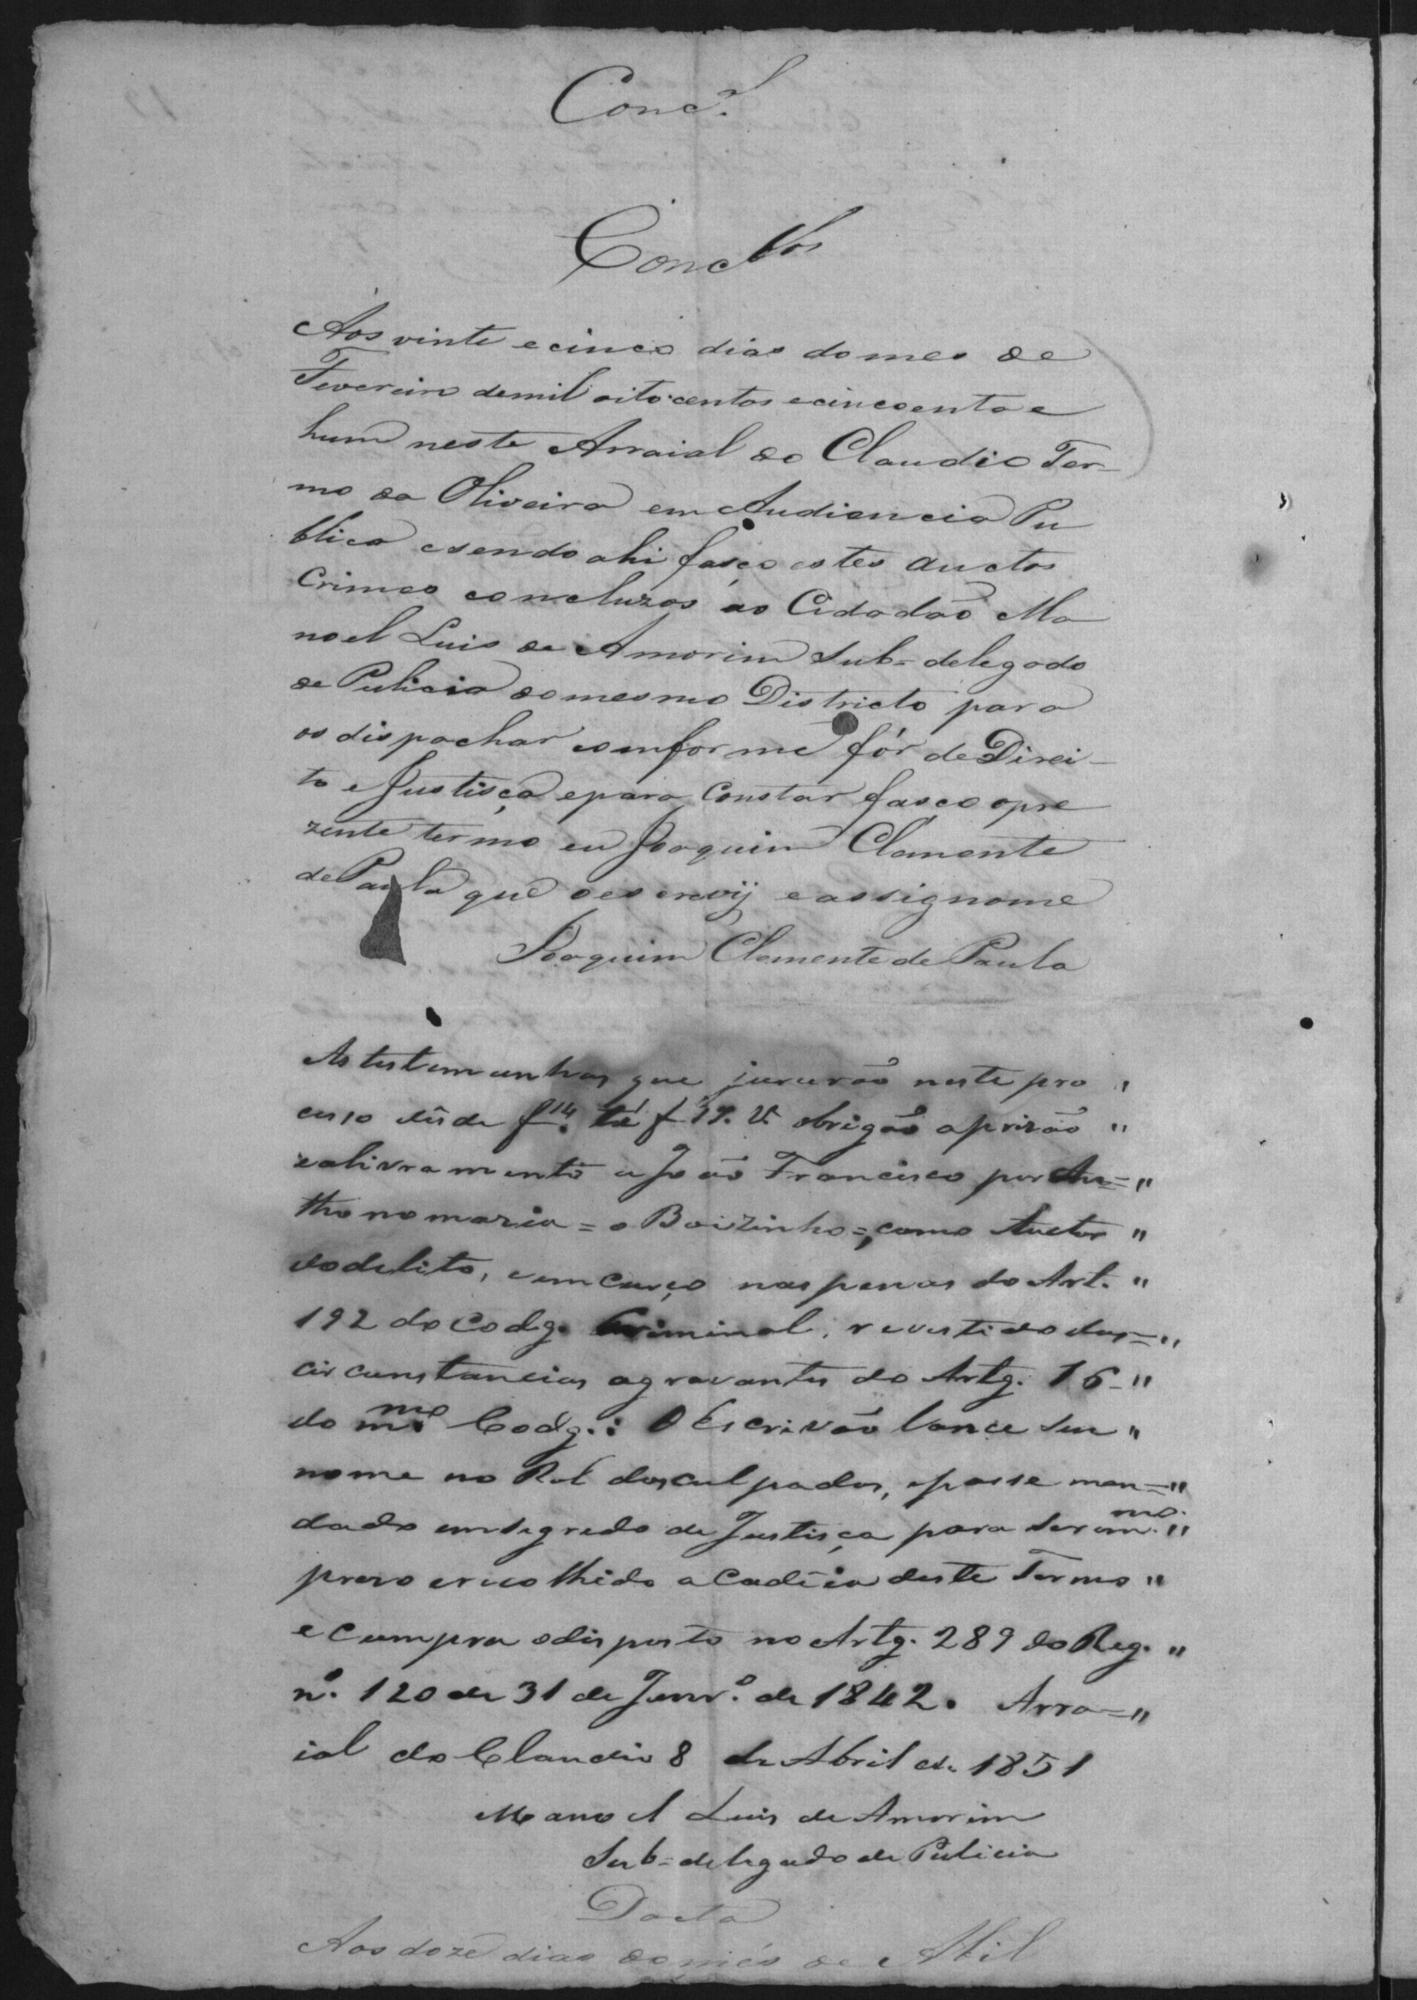 Conc.l
Concl.vos
Aos vinte e cinco dias do mes de
Fevereiro de mil oitocentos e cincoenta e
hum neste Arraial do Claudio Ter-
mo da Oliveira em Audiencia Pu
blica e sendo ahi fasço estes auctos
Crimes concluzos ao Cidadão Ma
noel Luis de Amorim Sub=delegado
de Pulicia do mesmo Districto para
os dispachar comforme fôr de Direi-
to e Justisça e para Constar fasço o pre
zente termo eu Joaquim Clemente
de Paula que o escrevij e assignome
Joaquim Clemente de Paula
As testemunhas que jurarão neste pro "
cesso dêsde f. 14 té f 19. V. obrigão a prizão "
e a livramento a João Francisco por An="
thonomazia = o Boizinho =, como Auctor "
do delito, e em curço nas penas do Art. "
192 do Codg. Criminal, revestido das="
circunstancias agravantes do Artg. 16-"
do m.mo Codg.: O Escrivão lance seu "
nome no Rol dos culpados, e passe man="
dado em segredo de Justisça para ser o m.mo "
prezo e recolhido a Cadêia deste Termo "
e cumpra o disposto no Artg. 289 do Reg. "
n.º 120 de 31 de Janr.º de 1842. Arra="
ial do Claudio 8 de Abril de 1851
Manoel Luis de Amorim
Sub=delegado de Pulicia
Dacta
Aos doze dias do mês de Abil